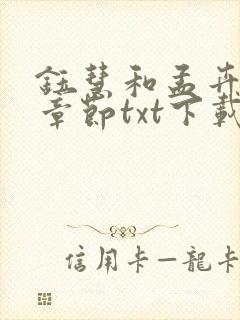 鈺慧和孟卉
章節txt下載
信用卡—龍卡